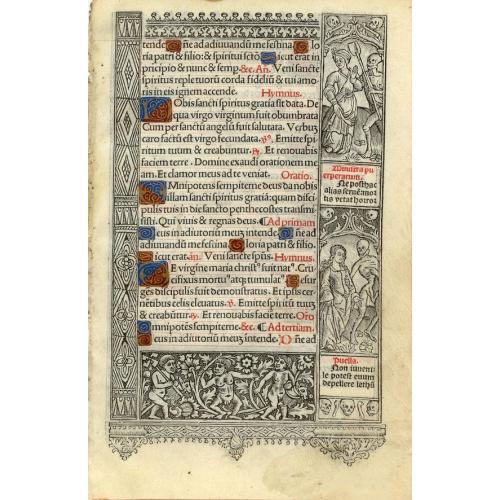 tende. Dñe ad adiuvandũ me festina Glo
ria patri & filio: & spiritui sctõ. Sicut erat in
principio & nunc & semp. &c. Añ. Veni sancte
spiritus reple tuorũ corda fidelíũ & tui amo
ris in eis ignem accende. Hymnus.
Nobis sancti spiritus gratia sit data. De
qua virgo virginum fuit obumbrata
Cum per sanctũ angelũ fuit salutata. Verbũ
caro factũ est virgo fecundata. ꝟ. Emitte spi
ritum tuum & creabuntur. ꝶ. Et renovabis
faciem terre. Domine exaudi orationem me
am. Et clamor meus ad te veniat. Oratio.
Omnipotens sempiterne deus da nobis
illam sancti spiritus gratiã: quam disci
pulis tuis in die sancto penthecostes transmi
sisti. Qui vivis & regnas deus. ¶ Ad primam
Deus in adiutoriũ meuȝ intende. Dñe ad
adiuvandũ me festina. Gloria patri & filio.
Sicut erat. añ. Veni sancte spũs. Hymnus.
De virgine maria christꝰ fuit natꝰ. Cru
cifixus mortuꝰ atqȝ tumulatꝰ. Resur
gẽs discipulis fuit demonstratus. Et ipsis cer
nẽtibus celis elevatus. ꝟ. Emitte spiritũ tuũ
& creabũtur. ꝶ. Et renovabis faciẽ terre. Oro
Omnipotẽs sempiterne. &c. ¶ Ad tertiam.
Deus in adiutoriũ meuȝ intende. Dñe ad
Ne posthac
alias
tis vetat horror
Puella.
Non iuvent
le potest euum
depellere lethũ